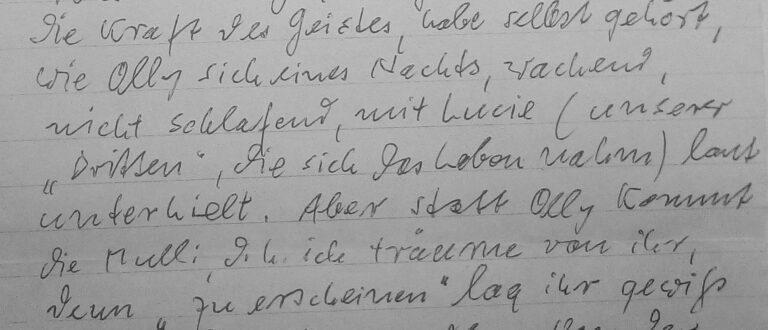 die Kraft des Geistes, habe selbst gehört,
wie Olly sich eines Nachts, wachend,
nicht schlafend, mit Lucie (unserer
„Dritten“, die sich das Leben nahm) laut
unterhielt. Aber statt Olly kommt
die Mulli, d.h. ich träume von ihr,
denn „zu erscheinen“ lag ihr gewiß